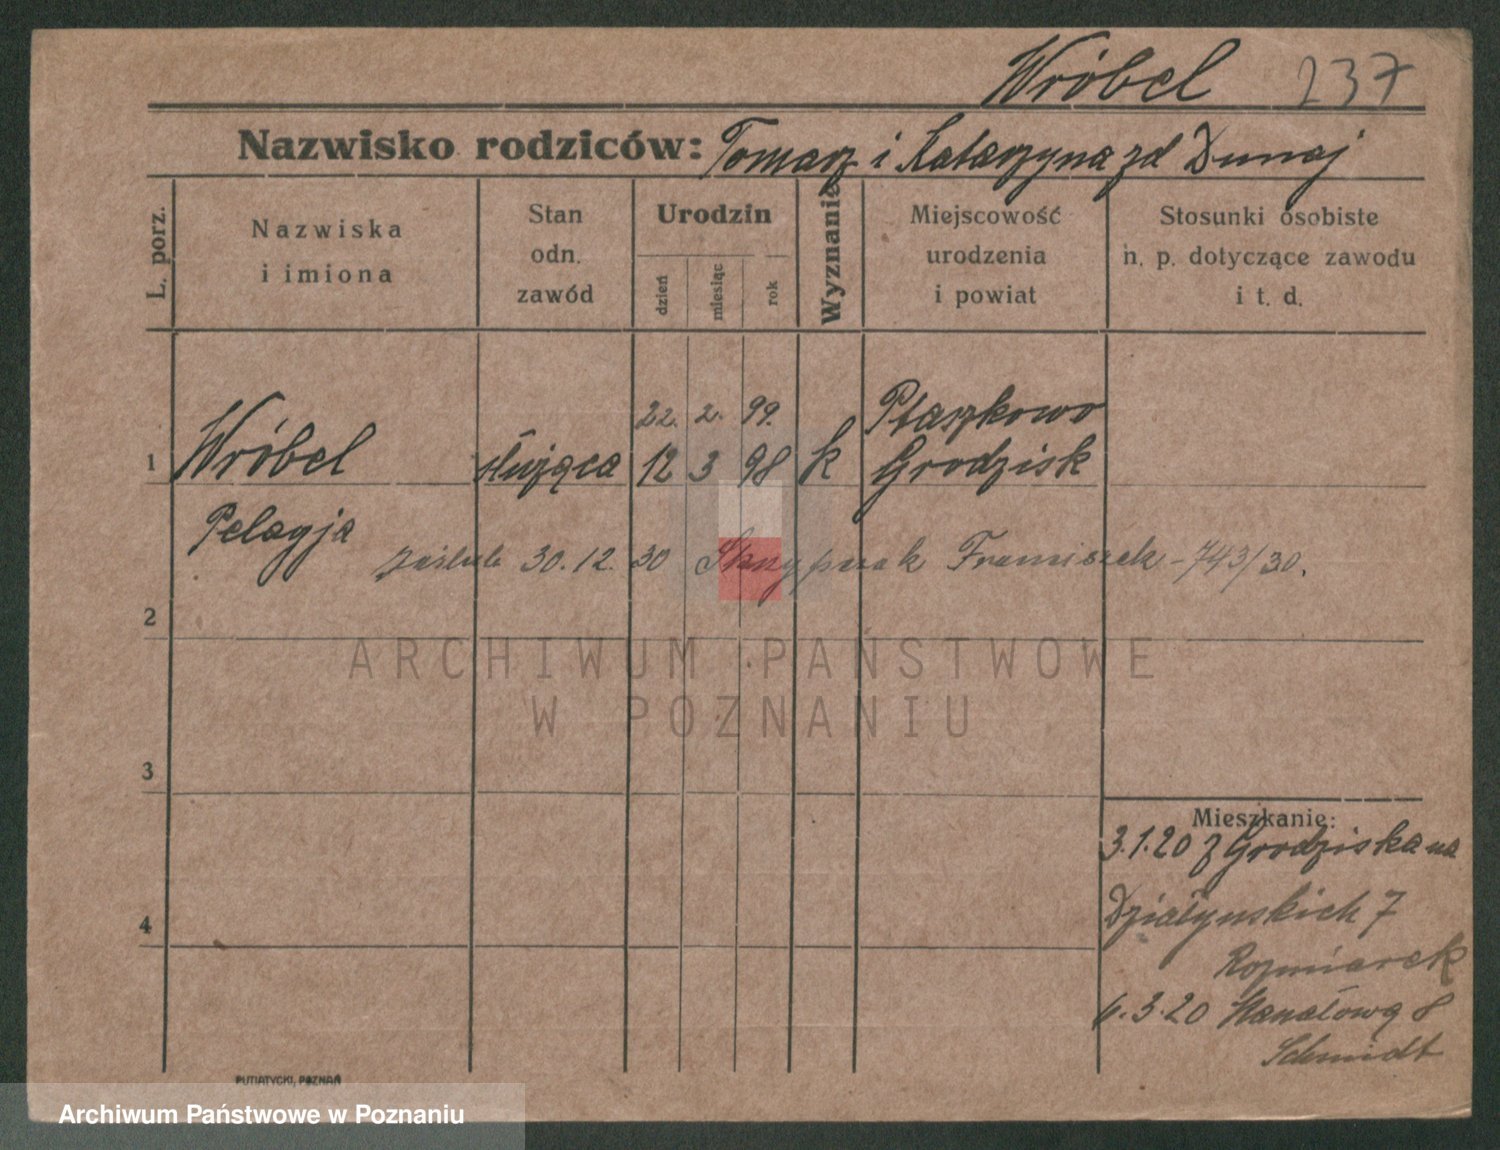 Wróbel 237
Nazwisko rodziców: Tomasz i Katarzyna zd Dunaj
L. porz.
Nazwiska i imiona
Stan odn. zawód
Urodzin
dzień
miesiąc
rok
Wyznanie
Miejscowość urodzenia i powiat
Stosunki osobiste n. p. dotyczące zawodu i t. d.
22. 2. 99. Ptaszkowo
1 Wróbel służąca 12 3 98 k Grodzisk
Pelagja
zaślub 30. 12. 30 Skrzypczak Franciszek - 743/30.
2
ARCHIWUM PAŃSTWOWE
W POZNANIU
3
Mieszkanie:
3.1.20 z Grodziska na
4 Działyńskich 7
Rozmiarek
6.3.20 Kanałowa 8
Schmidt
PUTIATYCKI, POZNAŃ
Archiwum Państwowe w Poznaniu